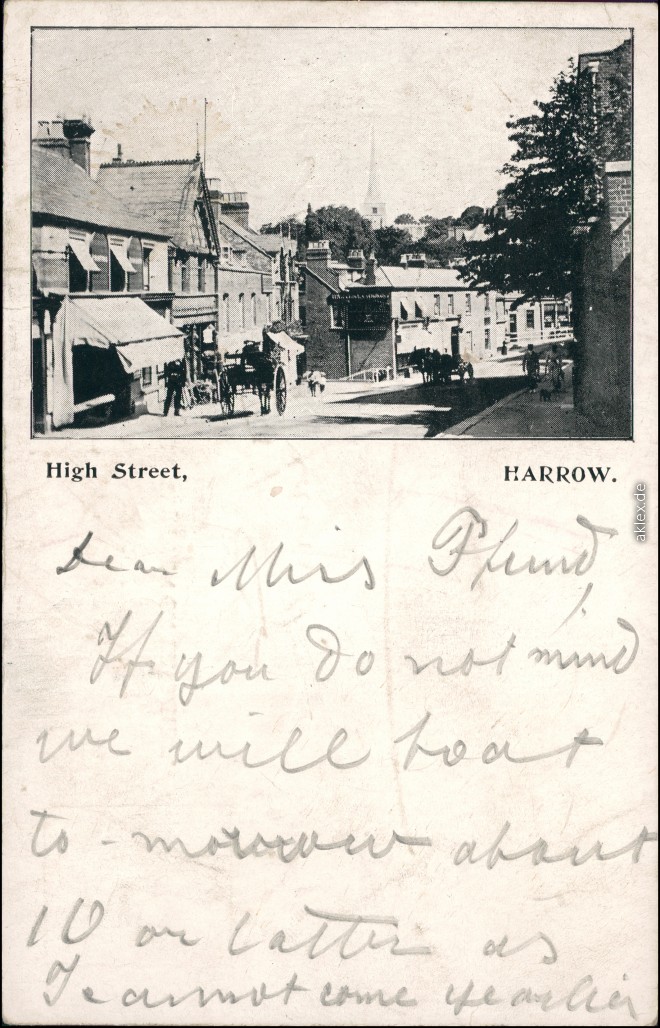 High Street, HARROW.
aklex.de
Dear Miss Pfund,
If you do not mind
we will boat
to-morrow about
10 or latter as
I cannot come yearlier